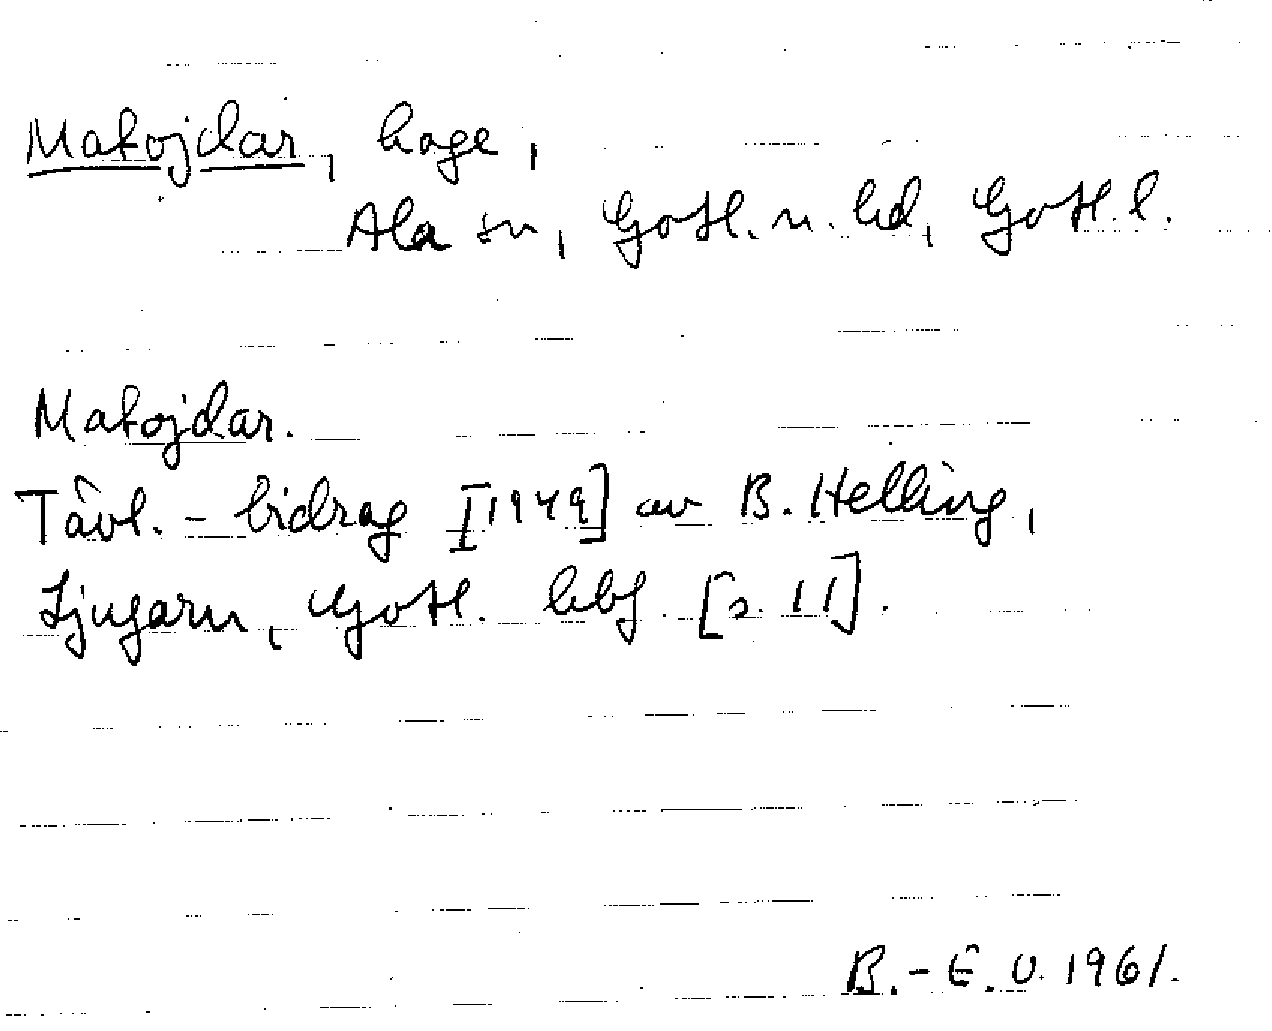 Matojdar, hage,
Ala sn, Gotl. n. hd, Gotl. l.
Matojdar.
Tävl. - bidrag [1949] av B. Helling,
Ljugarn, Gotl. hbf. [s. 11].
B.-E. U. 1961.